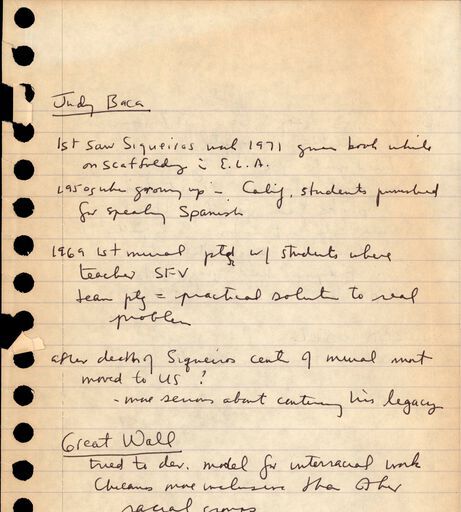 Judy Baca
1st saw Siqueiros work 1971 given book while
on scaffolding in E.L.A.
1950s when growing up in Calif, students punished
for speaking Spanish
1969 1st mural ptg w/ students where
teacher SFV
team ptg = practical solution to real
problem
after death of Siqueiros cent of mural mvmt
moved to US?
- more serious about continuing his legacy
Great Wall
tried to dev. model for interracial work
Chicanos more inclusive than other
racial groups